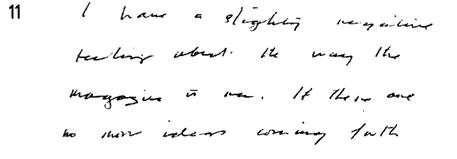 11 I have a slightly negative
feeling about the way the
magazine is run. If there are
no more ideas coming forth